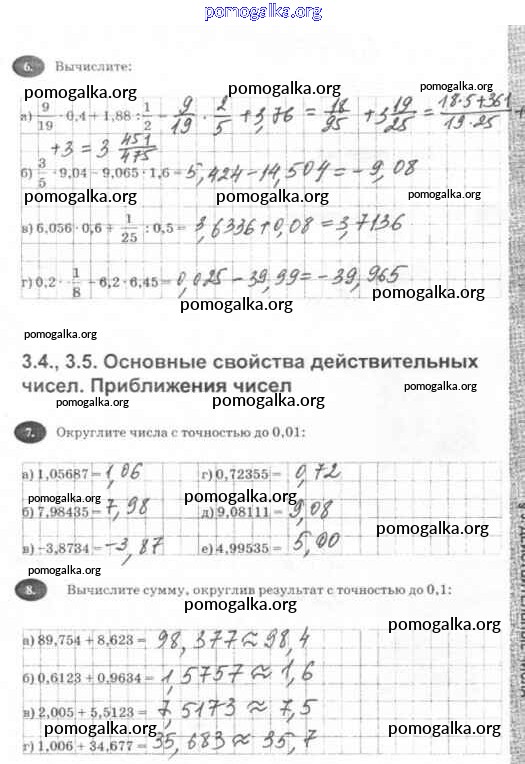 pomogalka.org
6. Вычислите:
pomogalka.org pomogalka.org
а) 9/19 · 0,4 + 1,88 : 1/2 = 9/19 · 2/5 + 3,76 = 18/95 + 3 19/25 = (18·5+361)/(19·25) +
+ 3 = 3 451/475
pomogalka.org
б) 3/5 · 9,04 − 9,065 · 1,6 = 5,424 − 14,504 = − 9,08
pomogalka.org pomogalka.org
в) 6,056 · 0,6 + 1/25 : 0,5 = 3,6336 + 0,08 = 3,7136
г) 0,2 · 1/8 − 6,2 · 6,45 = 0,025 − 39,99 = − 39,965
pomogalka.org pomogalka.org
pomogalka.org
3.4., 3.5. Основные свойства действительных
чисел. Приближения чисел
pomogalka.org
pomogalka.org pomogalka.org
7. Округлите числа с точностью до 0,01:
а) 1,05687 = 1,06 г) 0,72355 = 0,72
pomogalka.org pomogalka.org
б) 7,98435 = 7,98 д) 9,08111 = 9,08
pomogalka.org
pomogalka.org
в) −3,8734 = −3,87 е) 4,99535 = 5,00
pomogalka.org
8. Вычислите сумму, округлив результат с точностью до 0,1:
pomogalka.org
pomogalka.org
а) 89,754 + 8,623 = 98,377 ≈ 98,4
pomogalka.org
б) 0,6123 + 0,9634 = 1,5757 ≈ 1,6
pomogalka.org
в) 2,005 + 5,5123 = 7,5173 ≈ 7,5
pomogalka.org
г) 1,006 + 34,677 = 35,683 ≈ 35,7
pomogalka.org